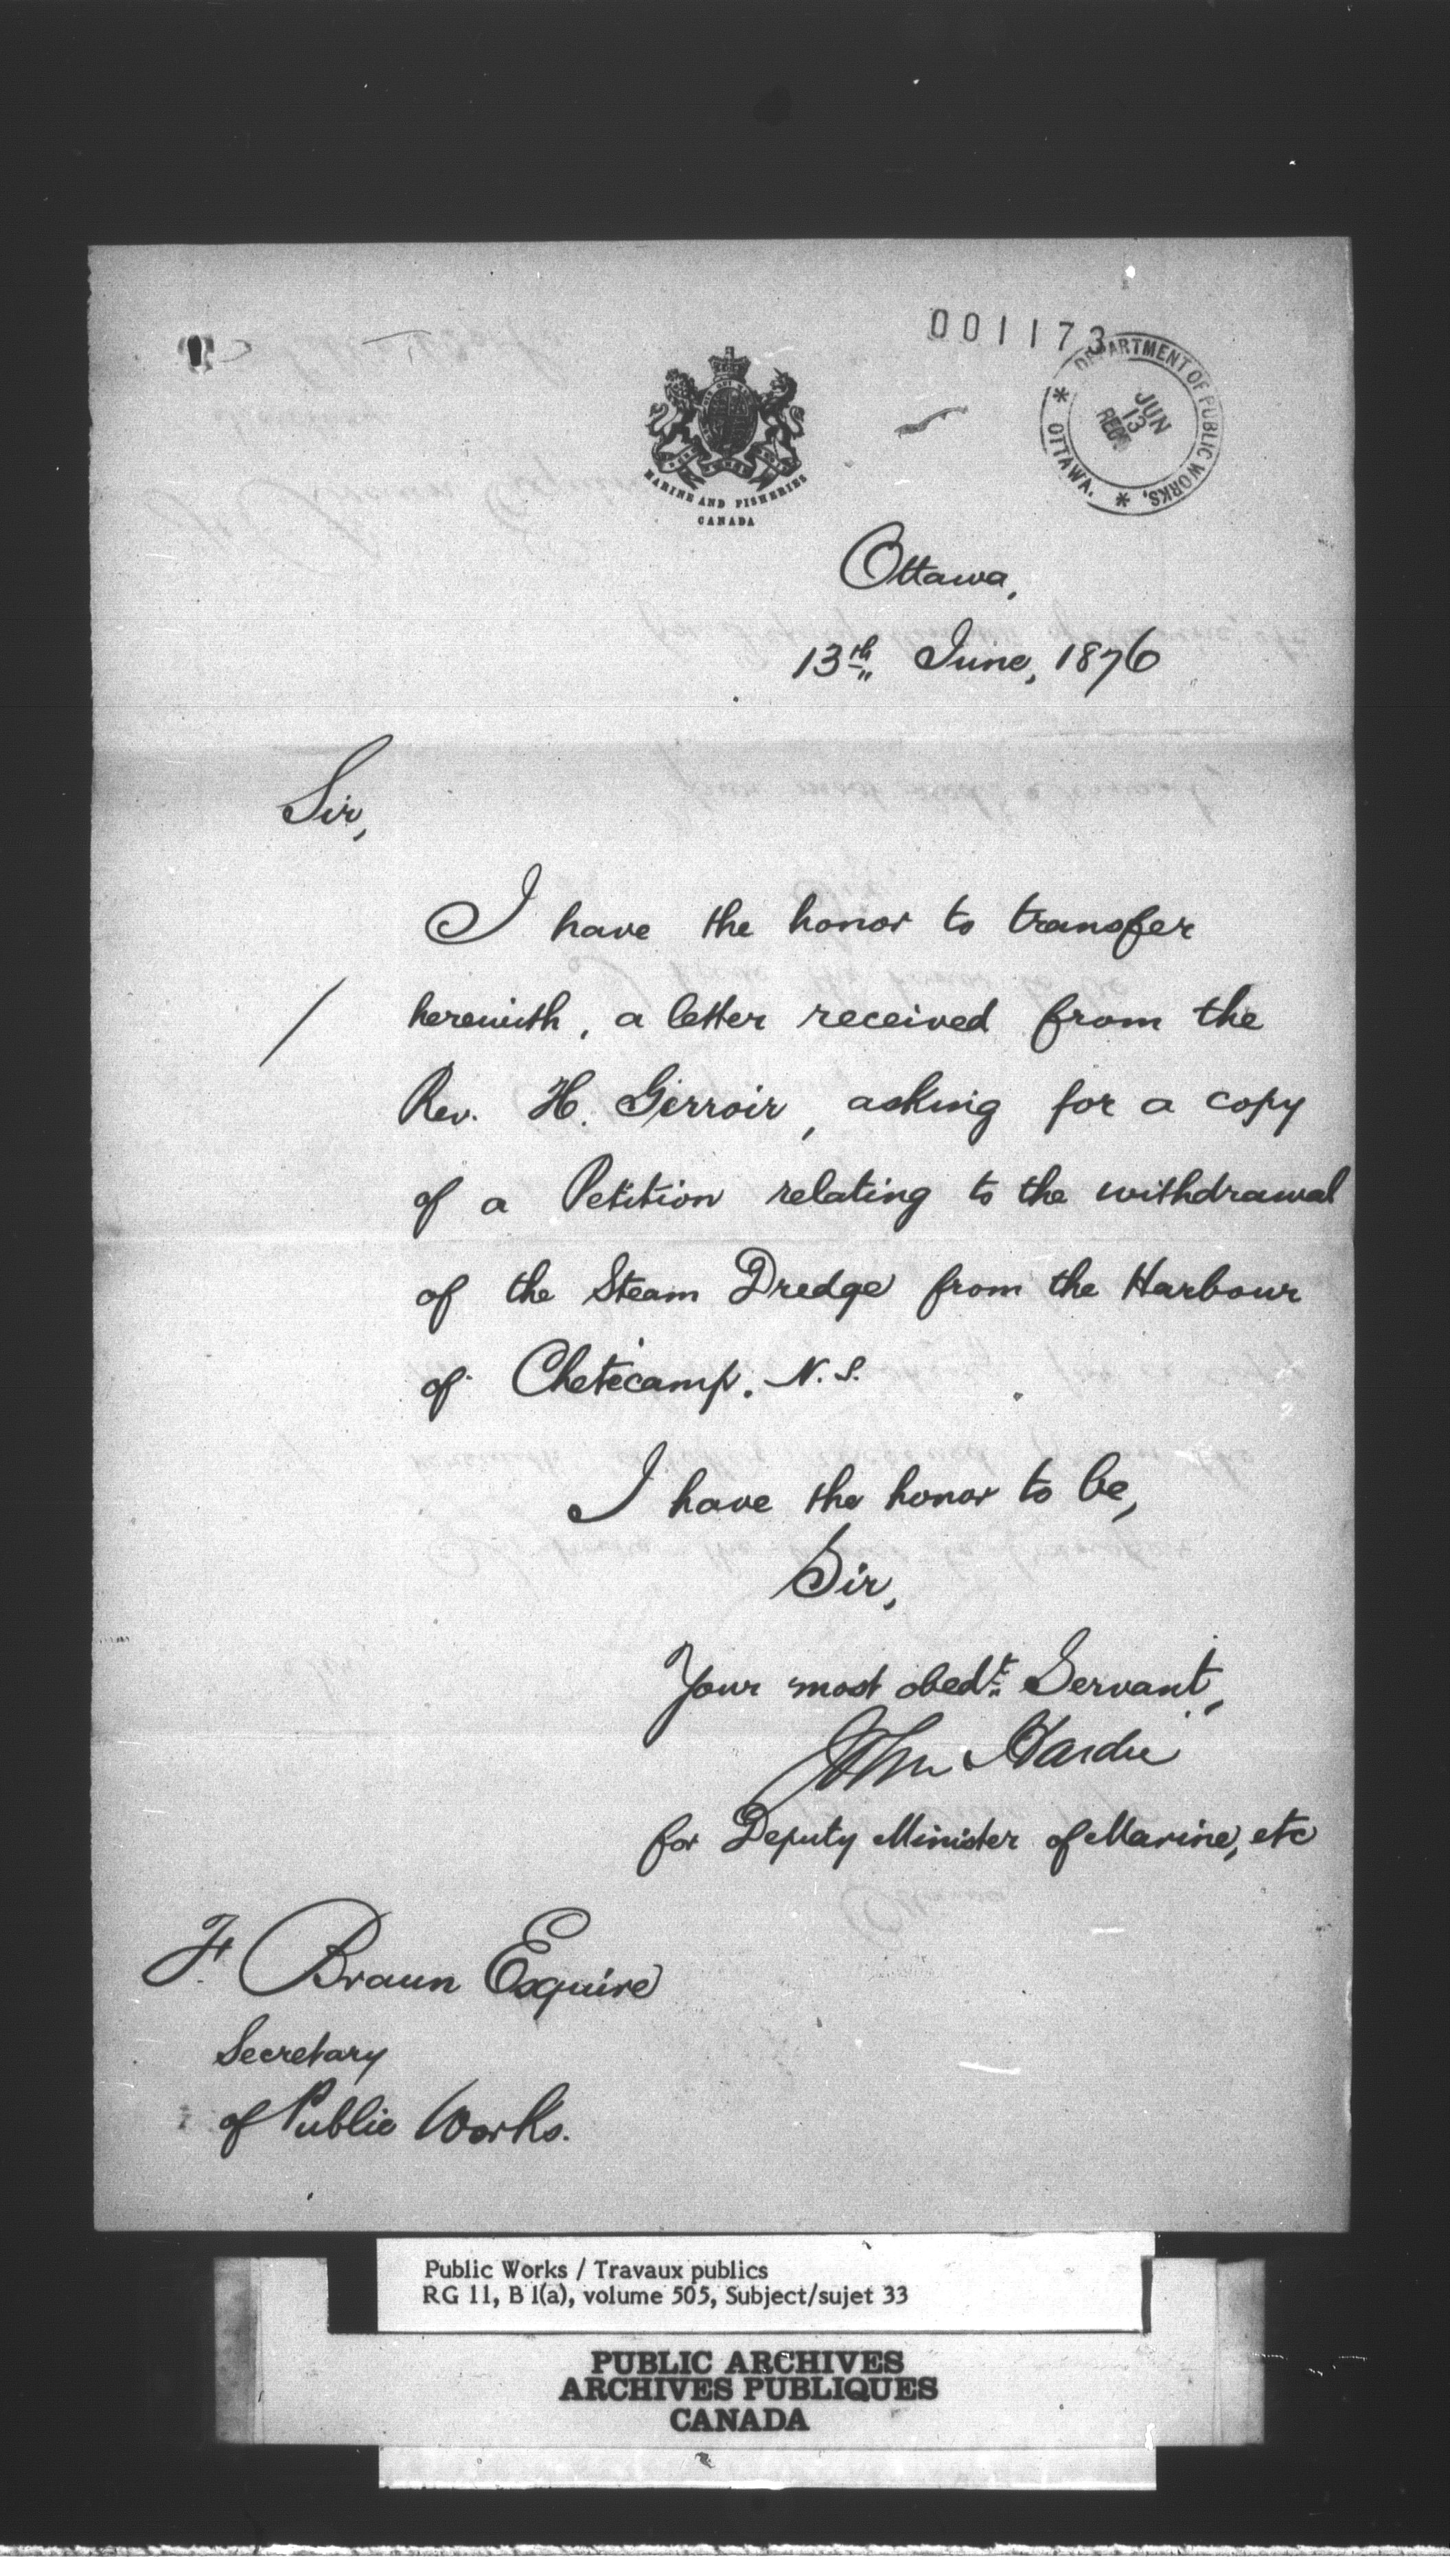 001173
DEPARTMENT OF PUBLIC WORKS, * OTTAWA. *
JUN
13
REC'D
MARINE AND FISHERIES
CANADA
Ottawa,
13th June, 1876
Sir,
I have the honor to transfer
herewith, a letter received from the
Rev. H. Girroir, asking for a copy
of a Petition relating to the withdrawal
of the Steam Dredge from the Harbour
of Chetecamp. N.S.
I have the honor to be,
Sir,
Your most obedt Servant,
John Hardie
for Deputy Minister of Marine, etc
F. Braun Esquire
Secretary
of Public Works.
Public Works / Travaux publics
RG 11, B 1(a), volume 505, Subject/sujet 33
PUBLIC ARCHIVES
ARCHIVES PUBLIQUES
CANADA